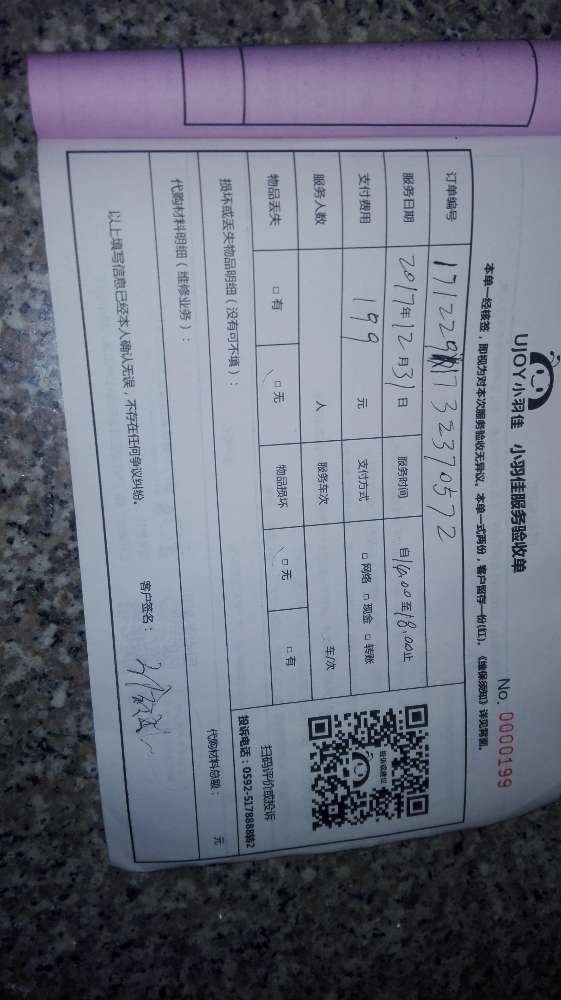 UJOY小羽佳 小羽佳服务验收单
No. 0000199
本单一经核签，即视为对本次服务验收无异议。本单一式两份，客户留存一份(红)。《维保须知》详见背面。
订单编号
服务日期 2017年12月31日 服务时间 自16:00至18:00止
支付费用 199 元 支付方式 □网络 □现金 □转账
服务人数 人 服务车次 车/次
物品丢失 □有 □无 物品损坏 □无 □有
损坏或丢失物品明细（没有可不填）：
代购材料明细（维修业务）：
代购材料总额： 元
以上填写信息已经本人确认无误，不存在任何争议纠纷。
客户签名：
投诉或建议
扫码评价或投诉
投诉电话：0592-5178888转2